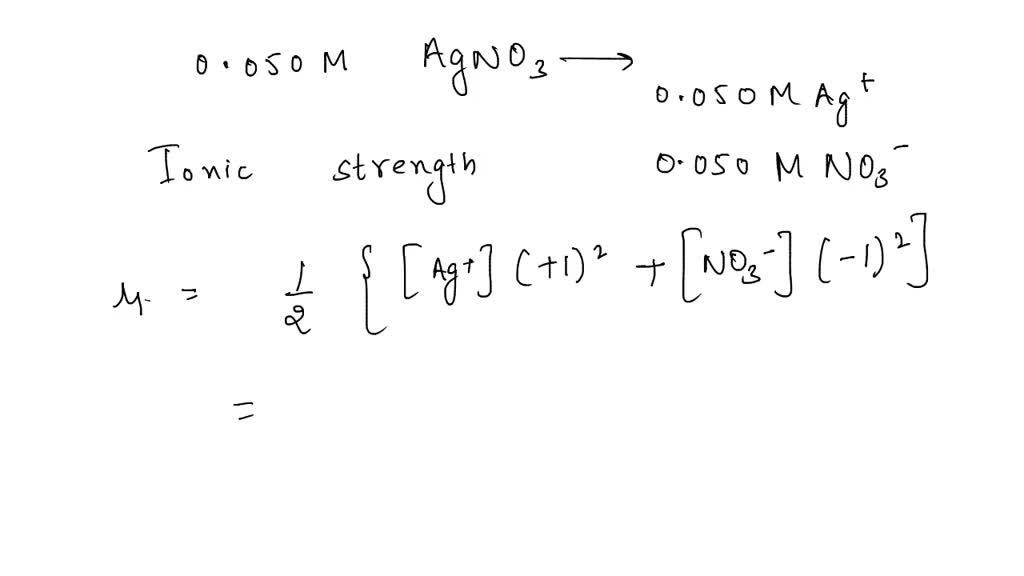 0.050 M AgNO₃ ⟶
0.050 M Ag⁺
Ionic strength 0.050 M NO₃⁻
μ = 1/2 { [Ag⁺] (+1)² + [NO₃⁻] (-1)² ]
=